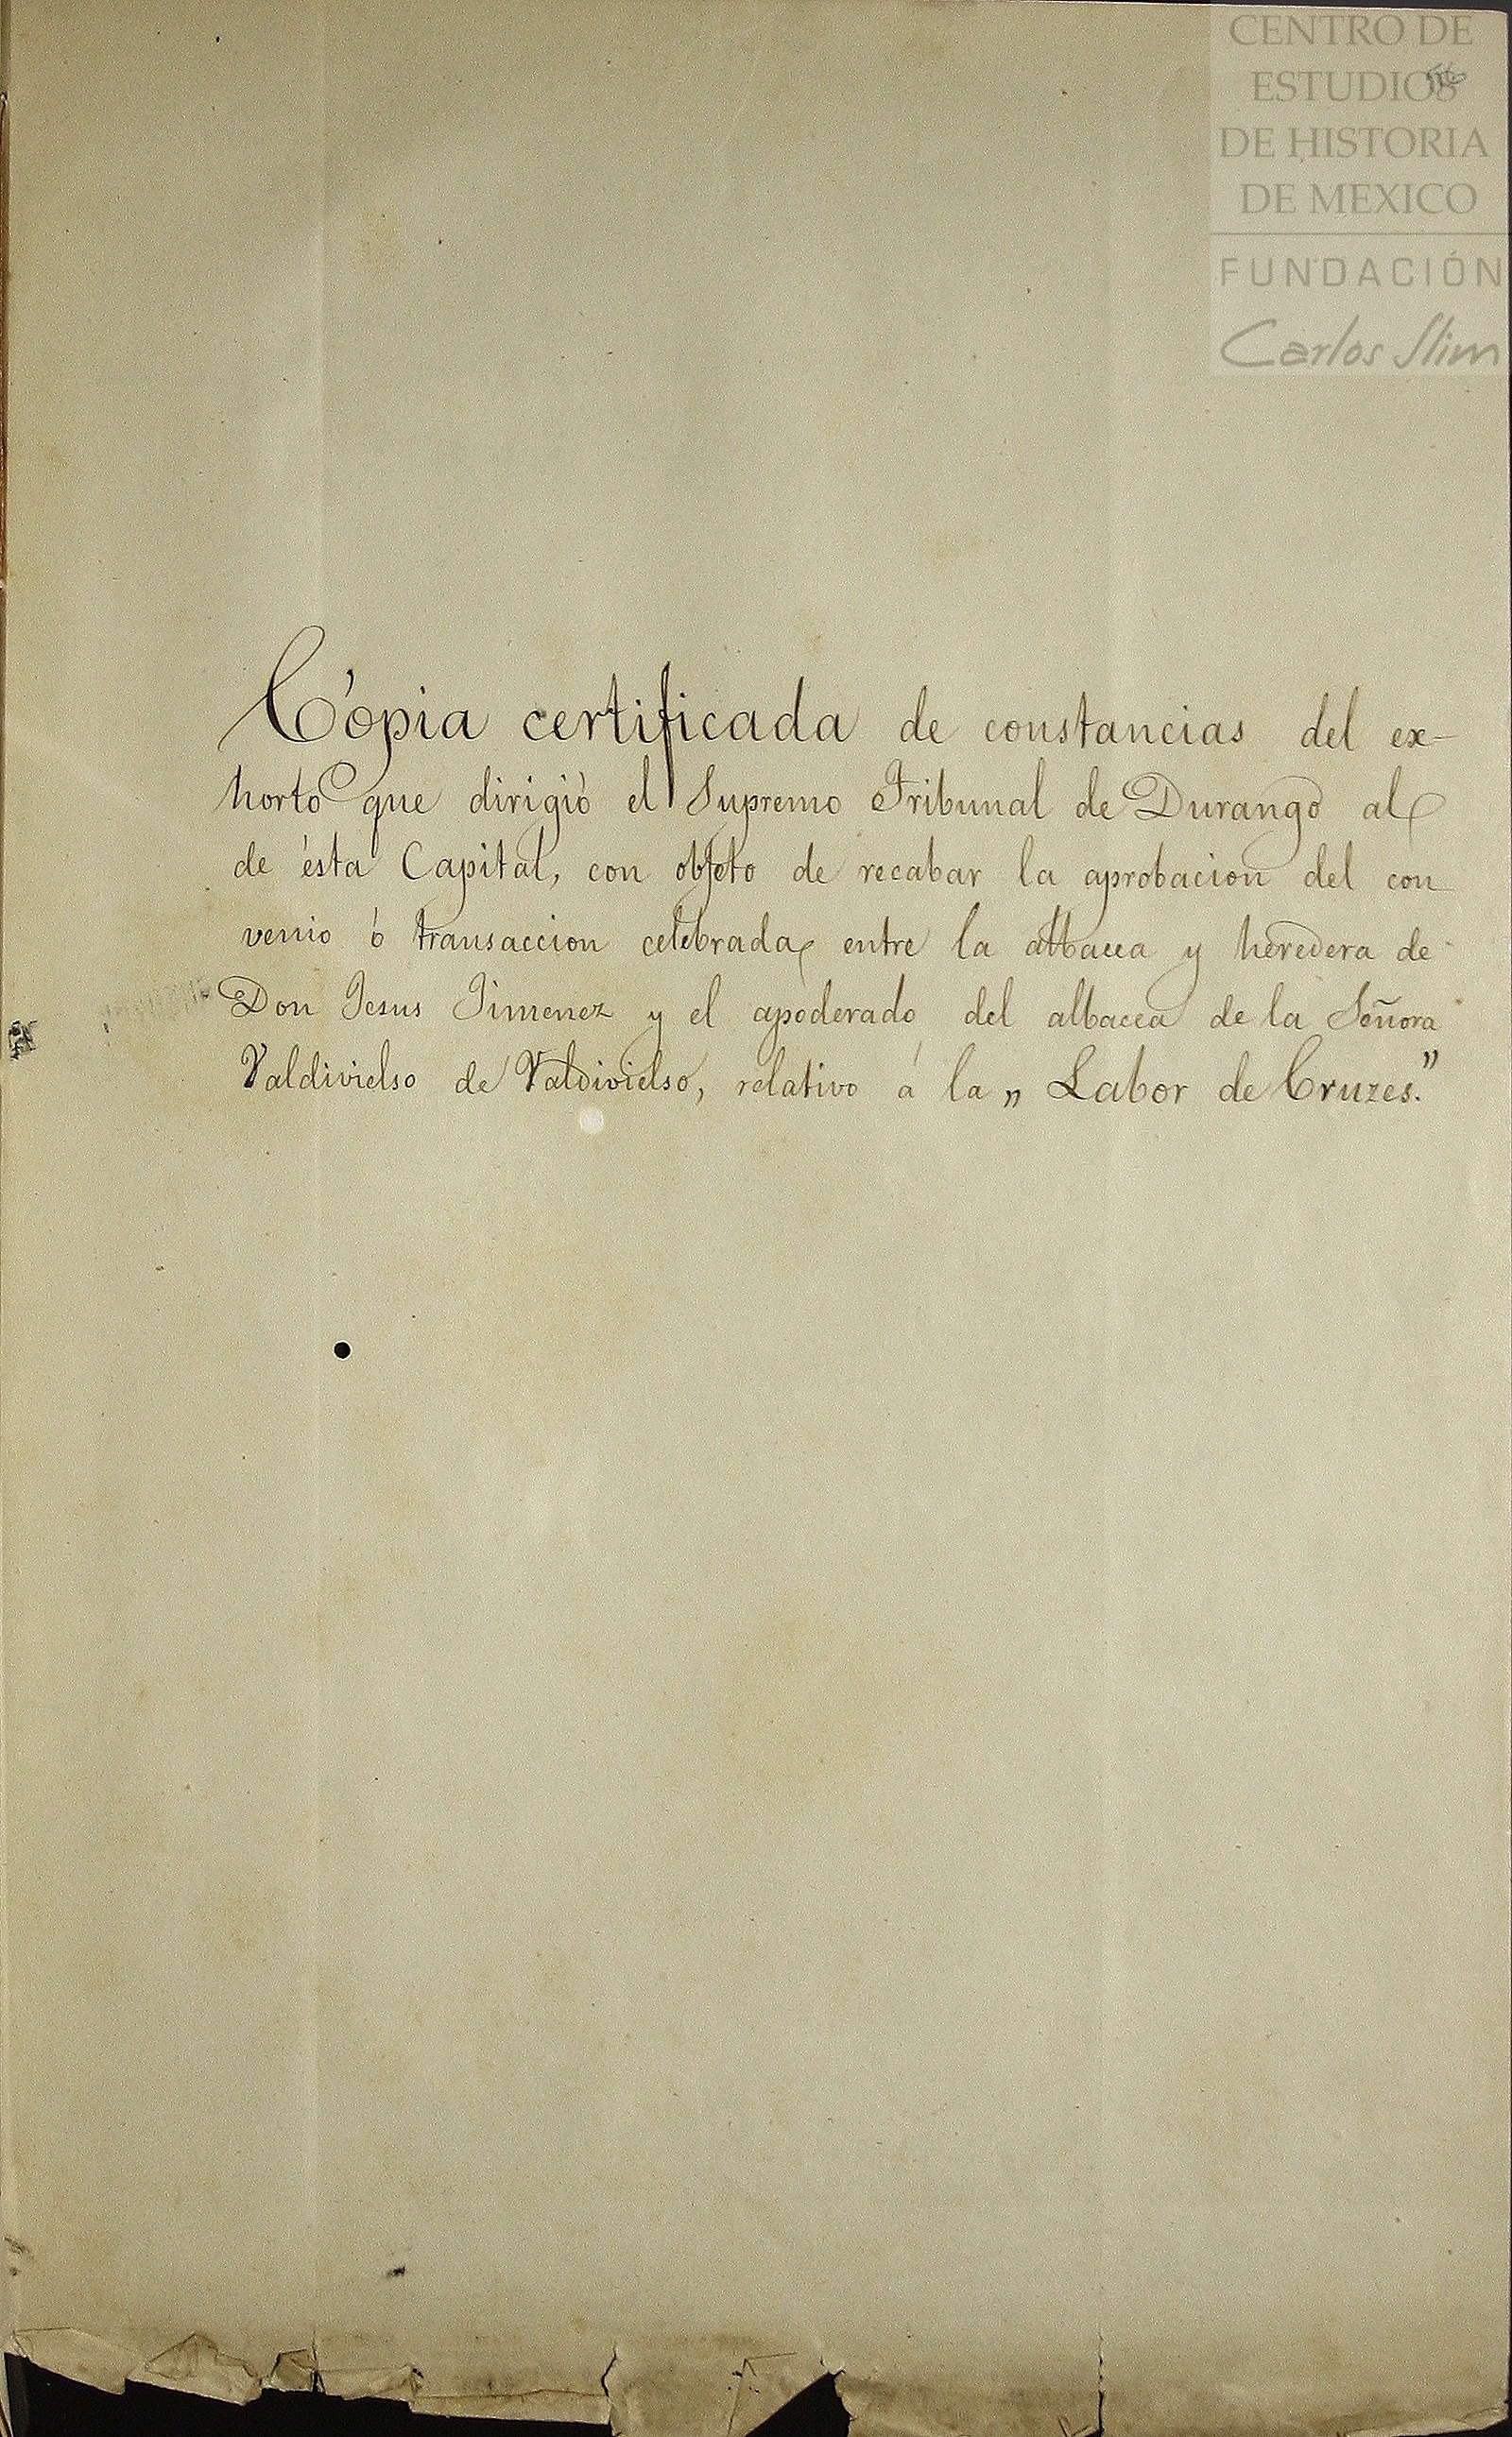 CENTRO DE
ESTUDIOS
DE HISTORIA
DE MEXICO
FUNDACIÓN
Carlos Slim
Cópia certificada de constancias del ex-
horto que dirigió el Supremo Tribunal de Durango al
de ésta Capital, con objeto de recabar la aprobacion del con
venio ó transaccion celebrada entre la albacea y heredera de
Don Jesus Jimenez y el apoderado del albacea de la Señora
Valdivielso de Valdivielso, relativo á la „ Labor de Cruzes.”